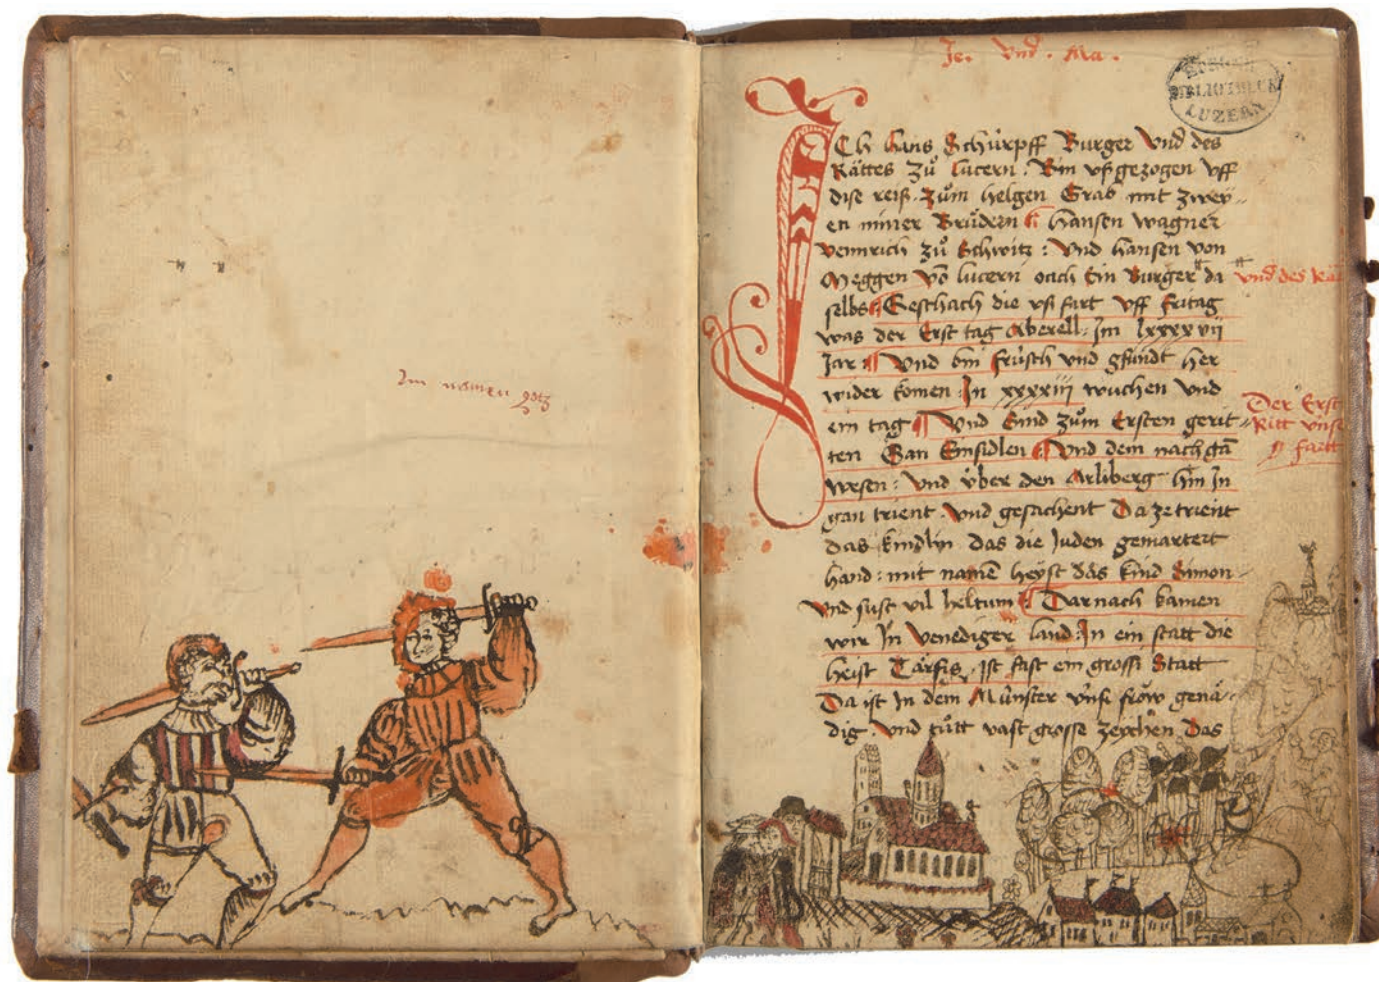 Im namen gotz
Je. vnd. Ma.
BIBLIOTHECK
LUZERN
ICh hans Schürpff Burger vnd des
Rättes zů lucern. Bin vsgezogen vff
dise reiß. zům helgen Grab mit zwey-
en miner Brüdern hansen wagner
venrich zů Schwitz: vnd hansen von
Meggen vō lucern och Ein Burger da
vnd des Rä
selbs Geschach die vsfart vff fritag
was der Erst tag Aberell. Im lxxxxvii
Jar vnd bin früsch vnd gsundt her
wider komen. In xxxxiii wuchen vnd
ein tag Vnd Sind zům Ersten gerit-
Der Erst
Ritt vnser
fartt
ten Gan Einsidlen Vnd dem nach gā
wesen: vnd v̊ber den Arliberg hin In
gan trient. vnd gesachent Da ze trient
das kindlin das die Juden gemartert
hand: mit namē heyst das kind Simon-
vnd sust vil heltum Darnach kamen
wir In venediger land. In ein statt die
heist Tärfis, Ist fast ein grossi Statt
Da ist In dem Münster vnsi frow genä-
dig. vnd tůtt vast grosse zeychen Das